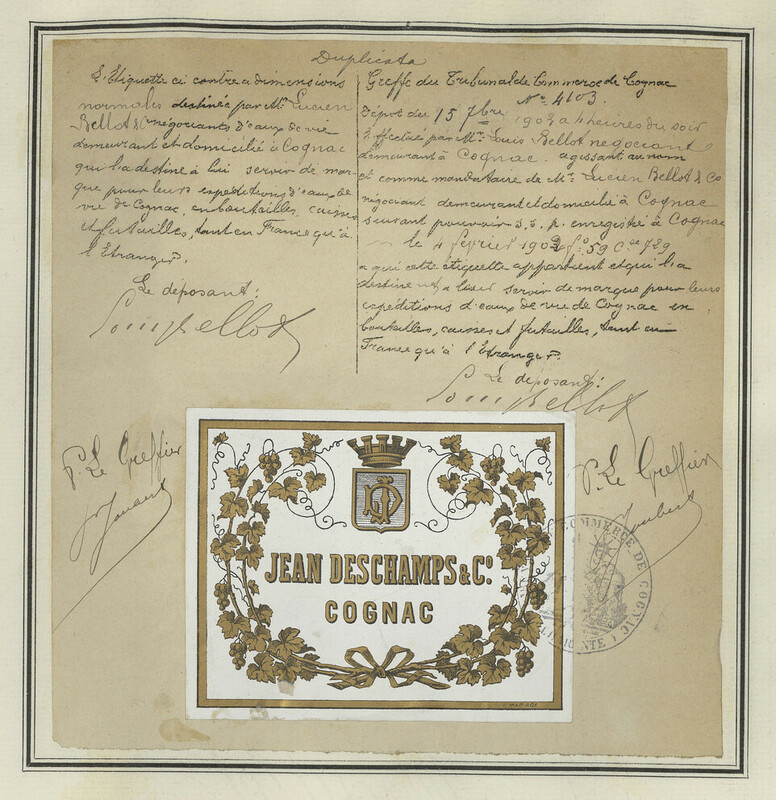 Duplicata
L'Etiquette ci contre a dimensions
normales destinée par Mr. Lucien
Bellot & C° négociants d'eaux de vie
demeurant et domicilié à Cognac
qui la destine à lui servir de mar-
que pour leurs expéditions d'eaux de
vie de Cognac, en bouteilles, caisses
et futailles, tant en France qu'à
l'Etranger.
Le déposant:
Louis Bellot
Greffe du Tribunal de Commerce de Cognac
N° 4103.
Dépôt du 15 7bre 1903 à 4 heures du soir
Effectué par Mr. Louis Bellot négociant
demeurant à Cognac. agissant au nom
et comme mandataire de Mr. Lucien Bellot & Co
négociant demeurant et domicilié à Cognac
suivant pouvoir s.s.p. enregistré à Cognac
le 4 février 1902 f° 59 Cse 729
a qui cette étiquette appartient et qui la
destine à leur servir de marque pour leurs
expéditions d'eaux de vie de Cognac en
bouteilles, caisses et futailles, tant en
France qu'à l'Etranger.
Le déposant:
Louis Bellot
P. Le Greffier
P. Le Greffier
JEAN DESCHAMPS & C°.
COGNAC
COMMERCE DE COGNAC